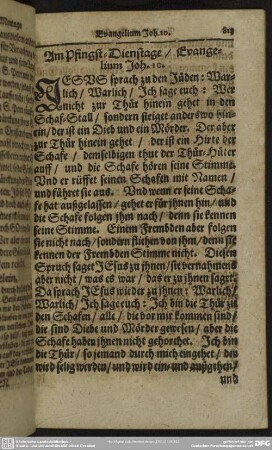 Evangelium Joh. 10. 813
Am Pfingst-Dienstage / Evange-
lium Joh. 10.
JESUS sprach zu den Jüden: War-
lich / Warlich / Ich sage euch: Wer
nicht zur Thür hinein gehet in den
Schaf-Stall / sondern steiget anderswo hin-
ein / der ist ein Dieb und ein Mörder. Der aber
zur Thür hinein gehet / der ist ein Hirte der
Schafe / demselbigen thut der Thür-Hüter
auff / und die Schafe hören seine Stimme.
Und er rüffet seinen Schafen mit Namen /
und führet sie aus. Und wenn er seine Scha-
fe hat außgelassen / gehet er für ihnen hin / und
die Schafe folgen ihm nach / denn sie kennen
seine Stimme. Einem Frembden aber folgen
sie nicht nach / sondern fliehen von ihm / denn sie
kennen der Frembden Stimme nicht. Diesen
Spruch saget JEsus zu ihnen / sie vernahmens
aber nicht / was es war / das er zu ihnen saget.
Da sprach JEsus wieder zu ihnen: Warlich /
Warlich / Ich sage euch: Ich bin die Thür zu
den Schafen / alle / die vor mir kommen sind /
die sind Diebe und Mörder gewesen / aber die
Schafe haben ihnen nicht gehorchet. Ich bin
die Thür / so jemand durch mich eingehet / der
wird selig werden / und wird ein- und außgehen /
und